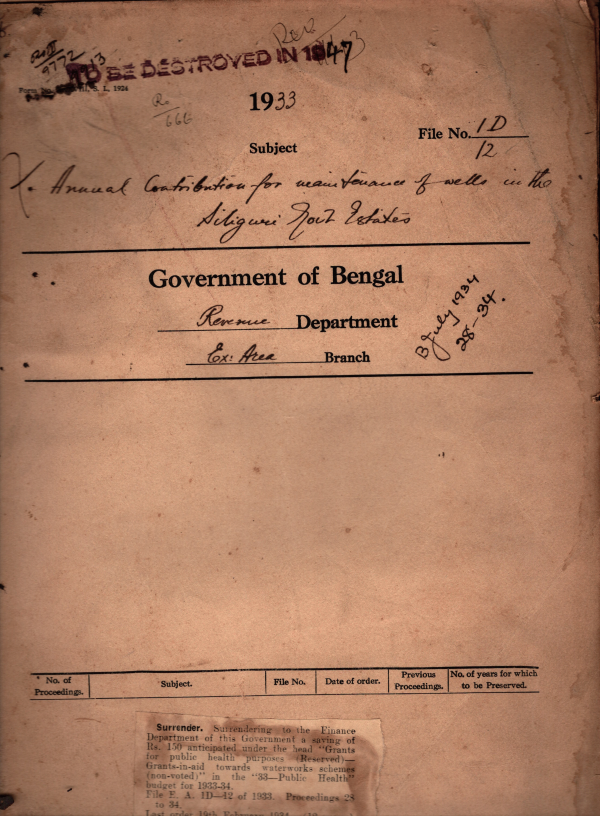 TO BE DESTROYED IN 1947
1933
File No. 1D
12
Subject
Annual Contribution for maintenance of wells in the
Siliguri Govt Estates
Government of Bengal
Revenue Department
Ex: Area Branch
B July 1934
28-34.
No. of Proceedings. Subject. File No. Date of order. Previous Proceedings. No. of years for which to be Preserved.
Surrender. Surrendering to the Finance
Department of this Government a saving of
Rs. 150 anticipated under the head "Grants
for public health purposes (Reserved)—
Grants-in-aid towards waterworks schemes
(non-voted)" in the "33—Public Health"
budget for 1933-34.
File E. A. 1D—12 of 1933. Proceedings 28
to 34.